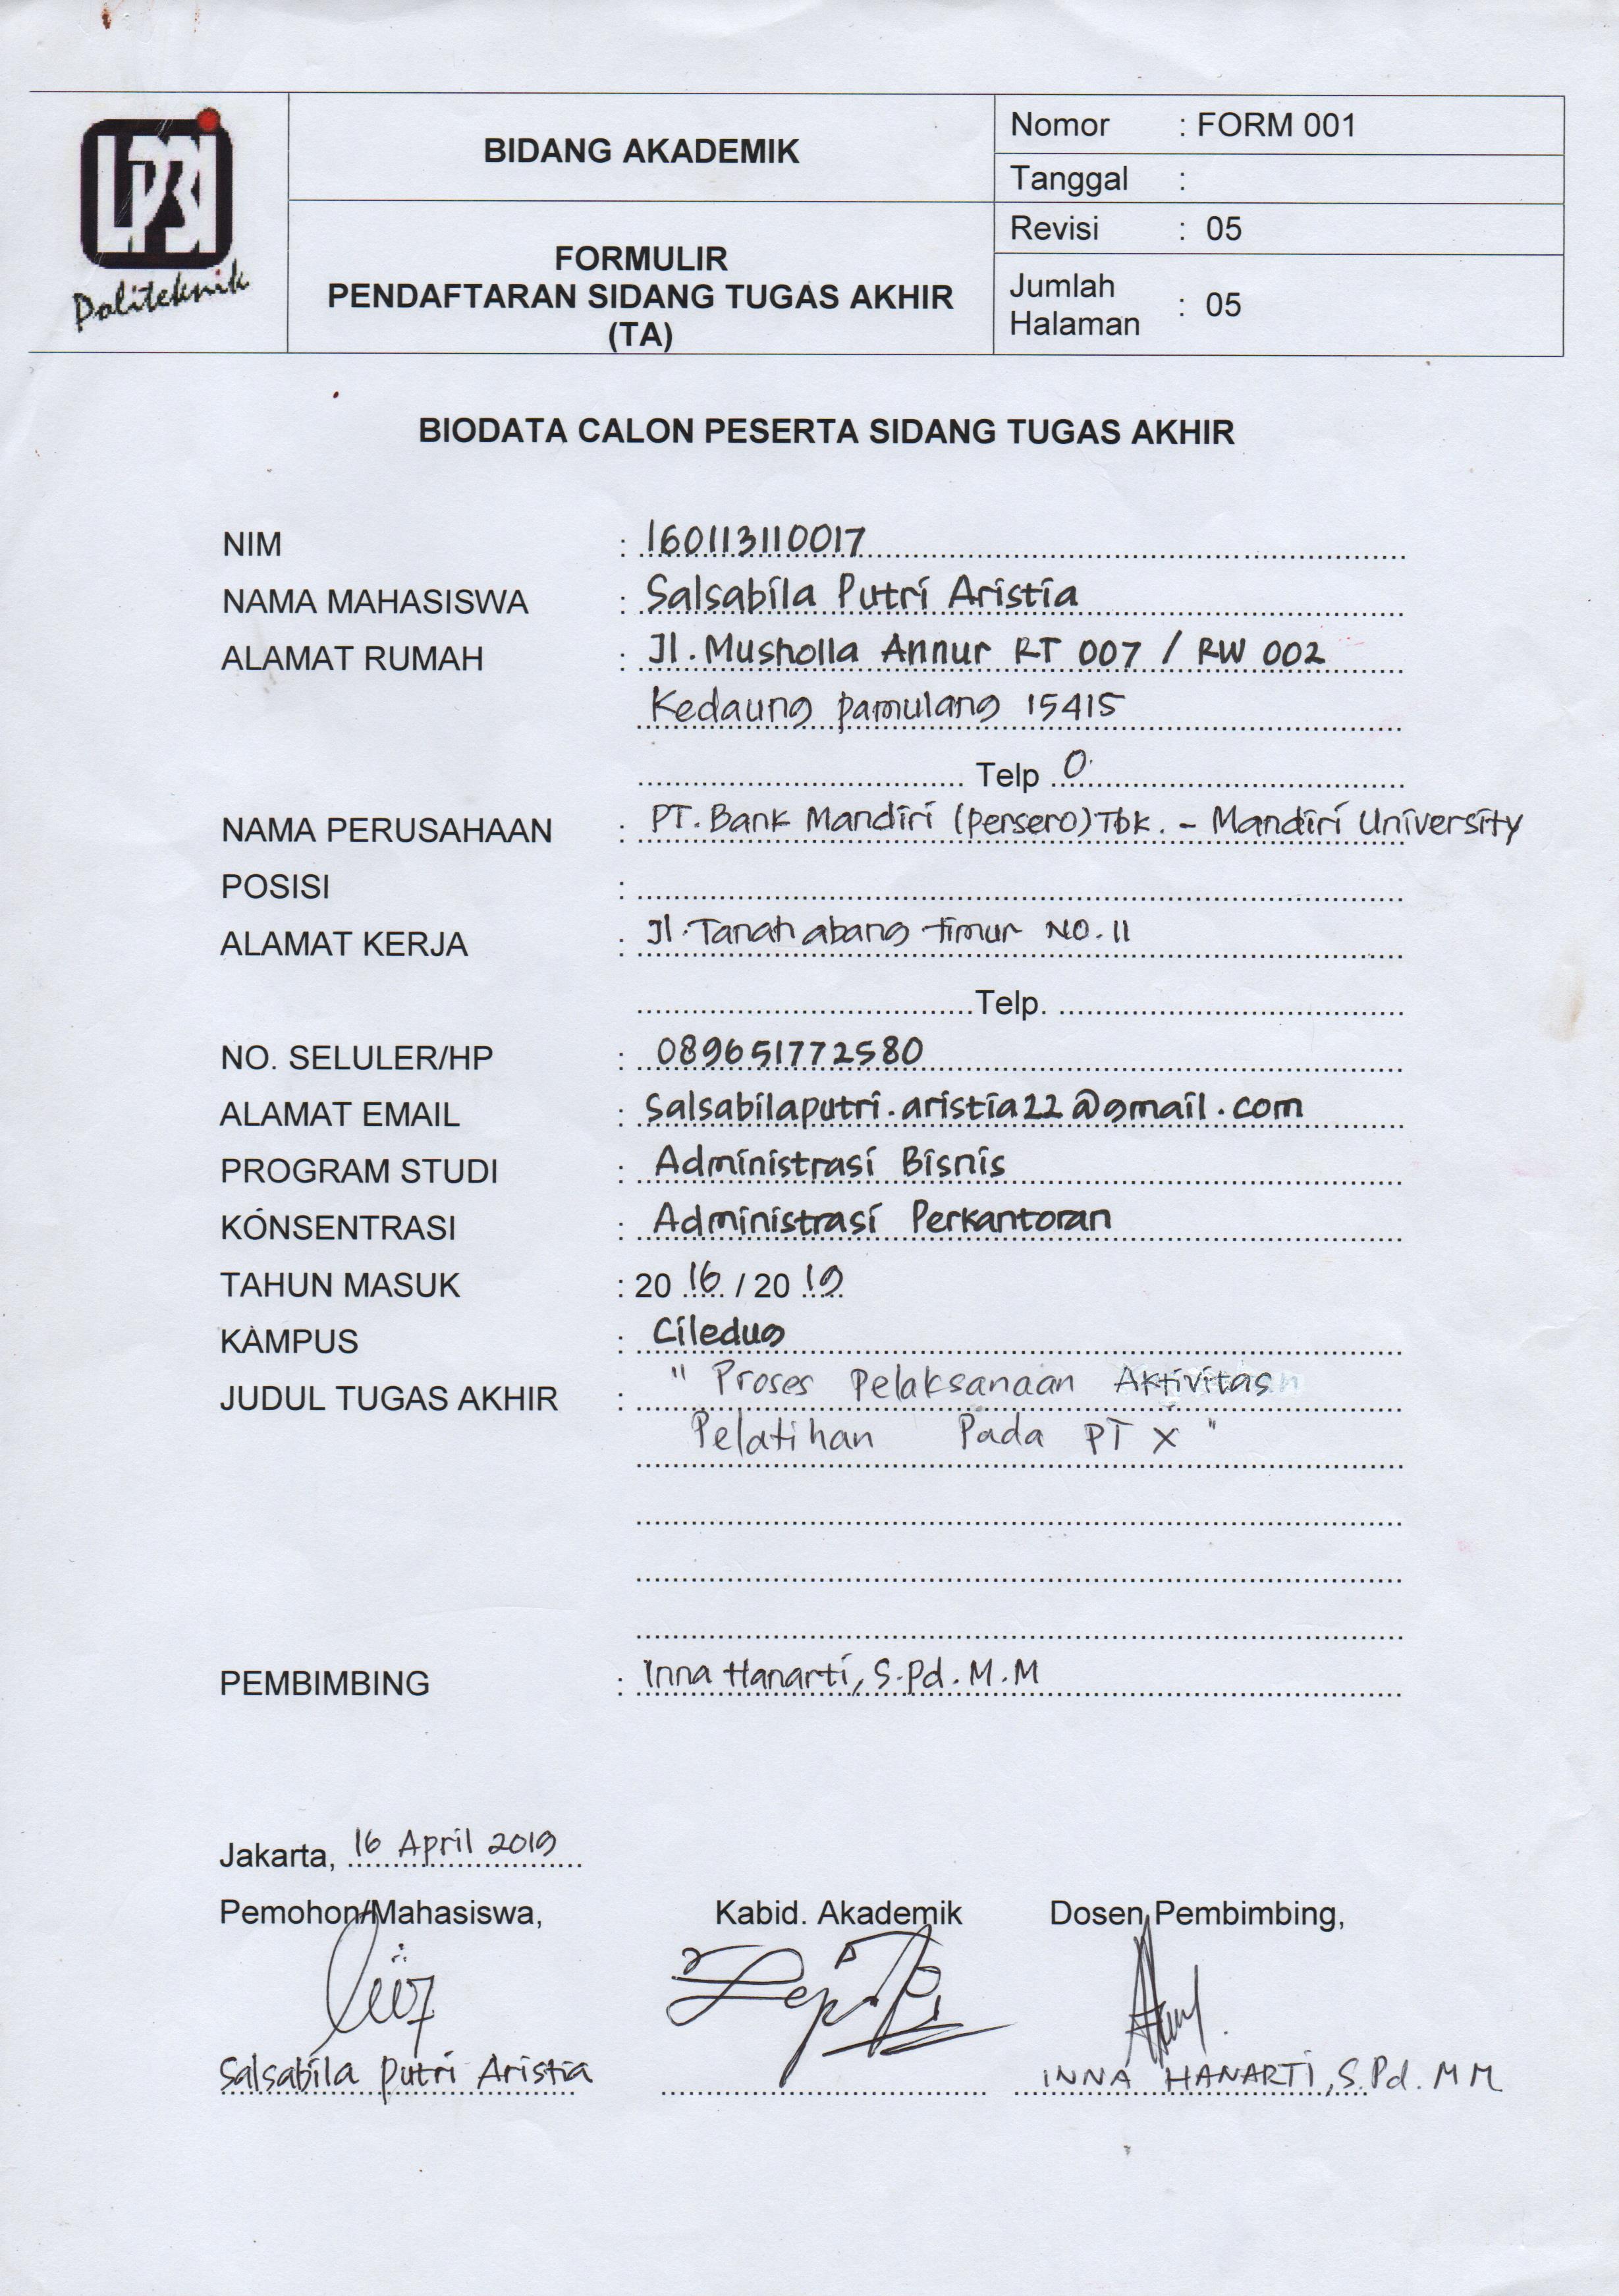 LP3I
Politeknik
BIDANG AKADEMIK
FORMULIR
PENDAFTARAN SIDANG TUGAS AKHIR
(TA)
Nomor : FORM 001
Tanggal :
Revisi : 05
Jumlah Halaman : 05
BIODATA CALON PESERTA SIDANG TUGAS AKHIR
NIM : 160113110017
NAMA MAHASISWA : Salsabila Putri Aristia
ALAMAT RUMAH : Jl. Musholla Annur RT 007 / RW 002
Kedaung pamulang 15415
Telp 0
NAMA PERUSAHAAN : PT. Bank Mandiri (persero) Tbk. - Mandiri University
POSISI :
ALAMAT KERJA : Jl. Tanah abang timur NO. 11
Telp.
NO. SELULER/HP : 089651772580
ALAMAT EMAIL : Salsabilaputri.aristia22@gmail.com
PROGRAM STUDI : Administrasi Bisnis
KONSENTRASI : Administrasi Perkantoran
TAHUN MASUK : 20 16 / 20 19
KAMPUS : Ciledug
JUDUL TUGAS AKHIR : " Proses Pelaksanaan Aktivitas
Pelatihan Pada PT X "
PEMBIMBING : Inna Hanarti, S.Pd. M.M
Jakarta, 16 April 2019
Pemohon/Mahasiswa, Kabid. Akademik Dosen Pembimbing,
Salsabila putri Aristia INNA HANARTI, S.Pd. MM